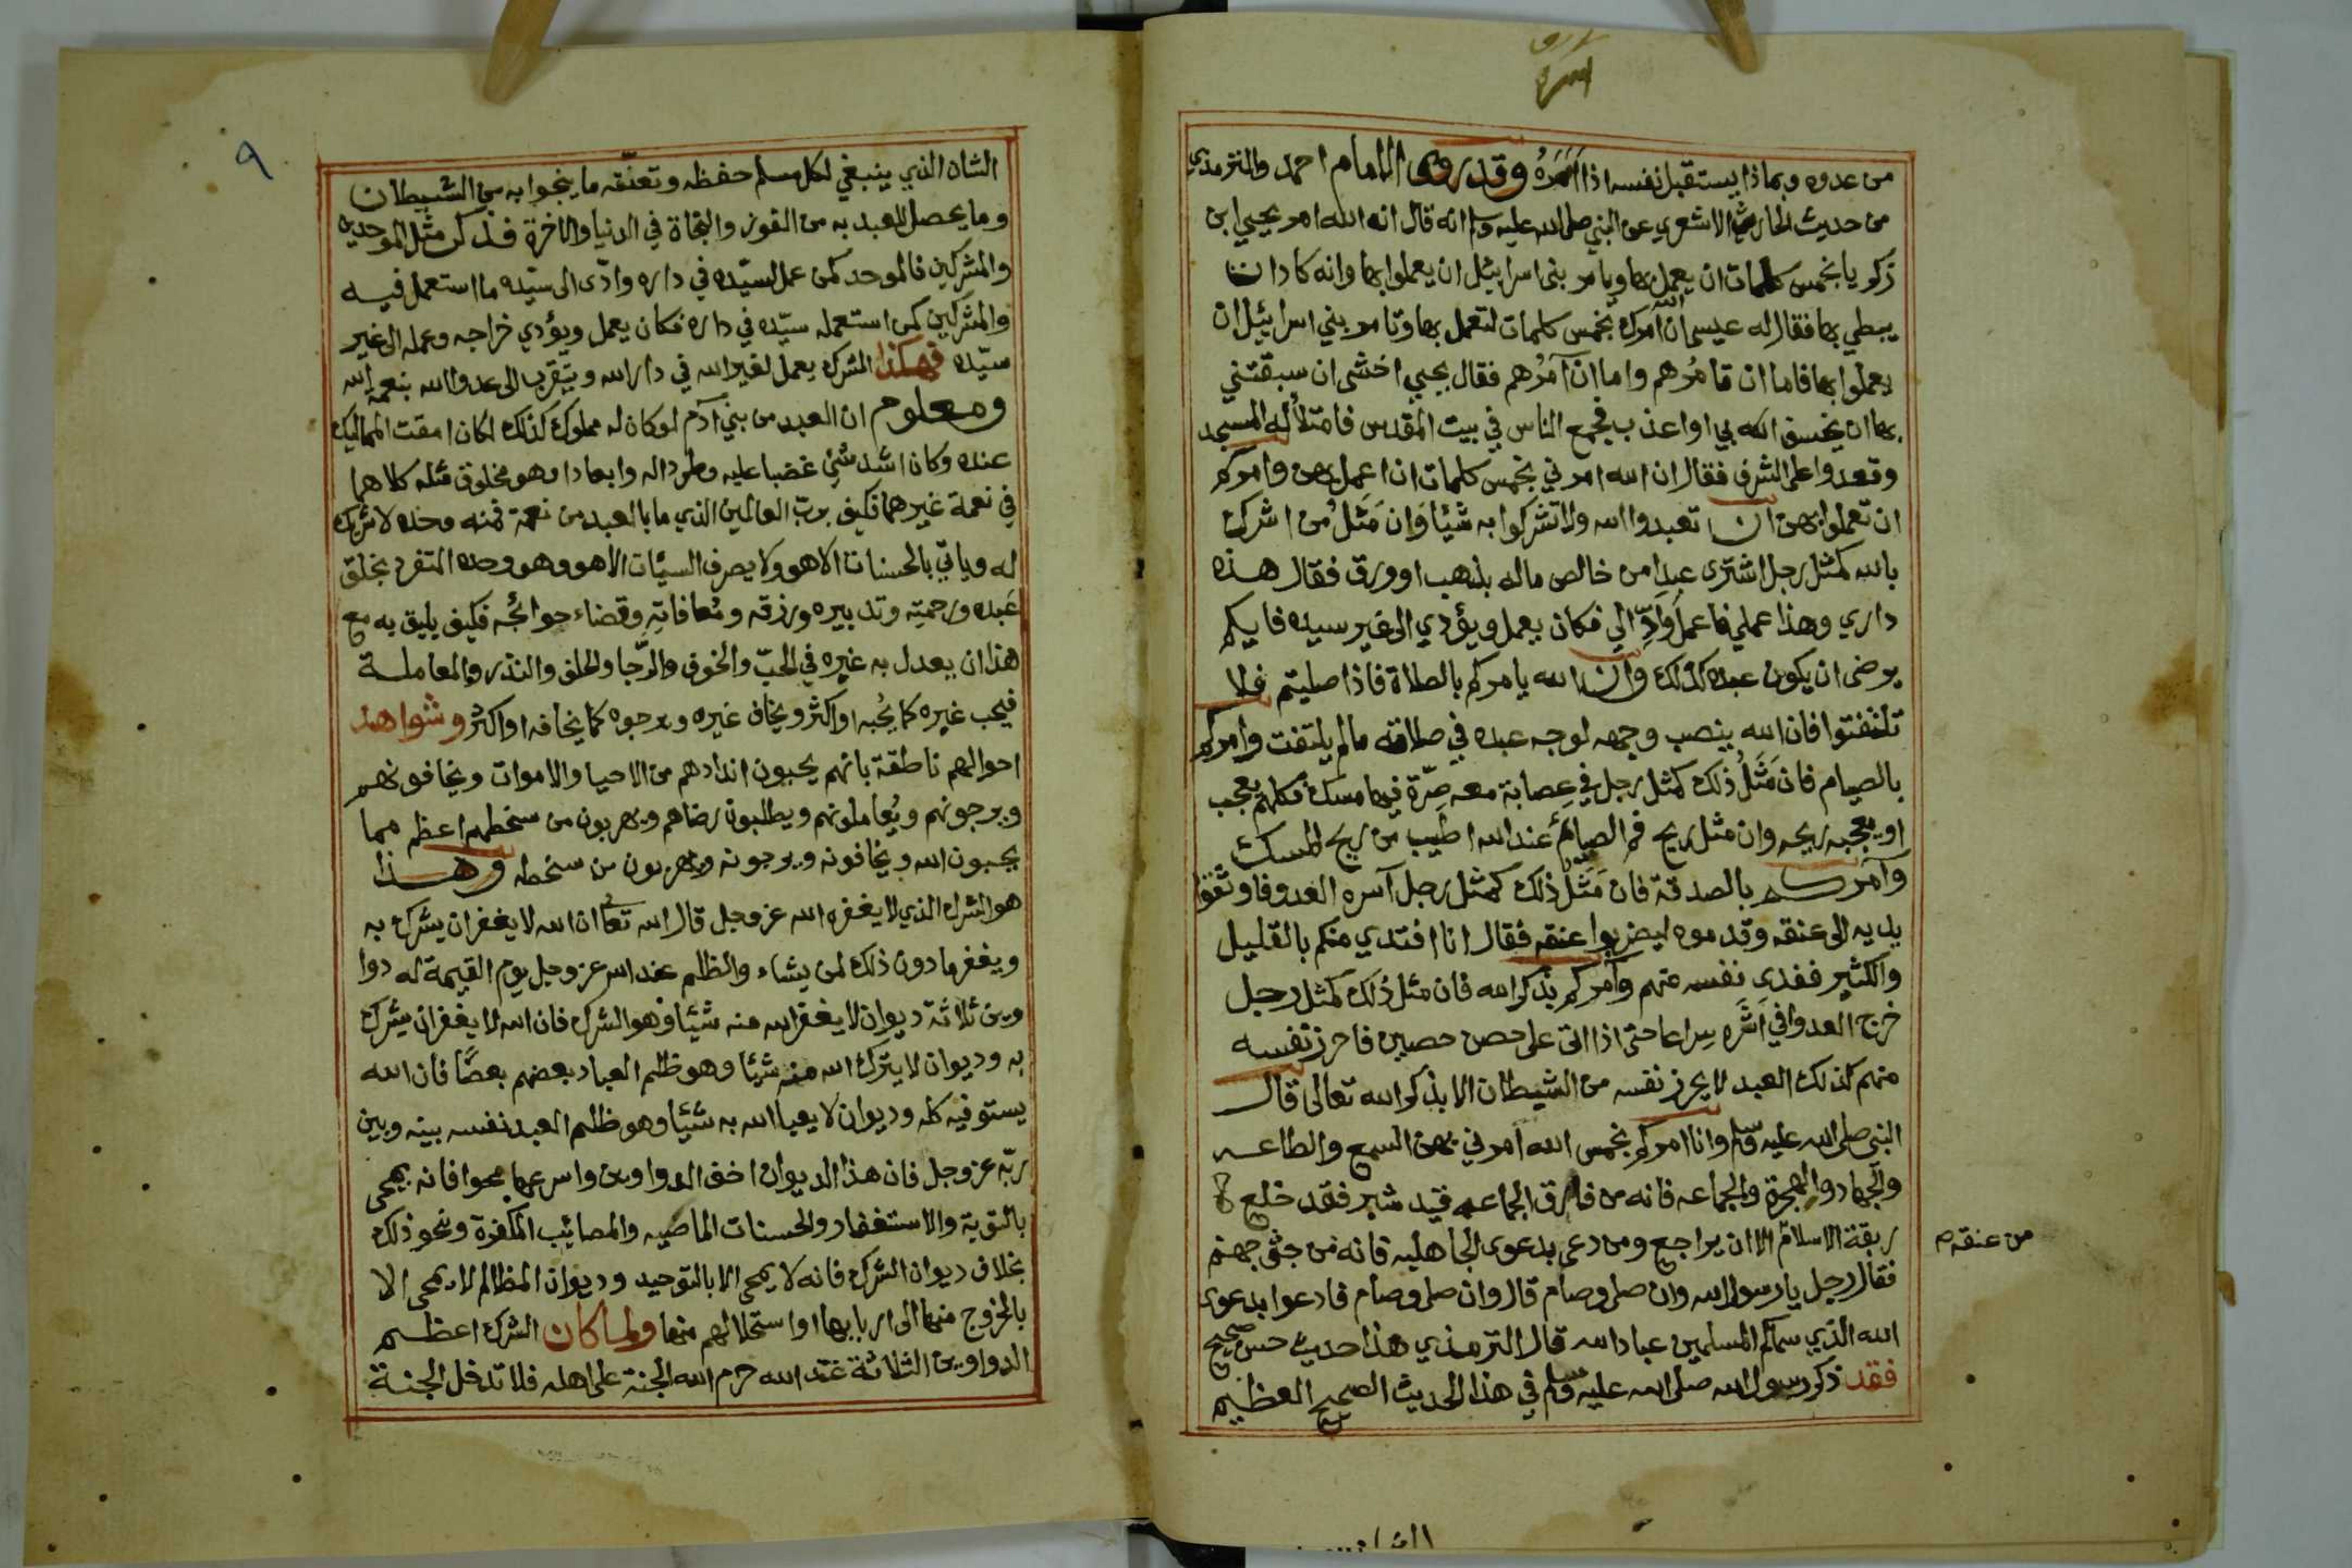 من عدوه وبماذا يستقبل نفسه اذا وقد روى الامام احمد والترمذي
من حديث الحارث الاشعري عن النبي صلى الله عليه وسلم انه قال انه الله امر يحيى ابن
زكريا بخمس كلمات ان يعمل بها ويامر بني اسرائيل ان يعملوا بها وانه كاد ان
يبطي بها فقال له عيسى ان الله امرك بخمس كلمات لتعمل بها وتامر بني اسرائيل ان
يعملوا بها فاما ان تامُرهم واما ان آمُرُهم فقال يحيى اخشى ان سبقتني
بها ان يخسف الله بي او اعذب فجمع الناس في بيت المقدس فامتلأ له المسجد
وقعدوا على الشرف فقال ان الله امرني بخمس كلمات ان اعمل بهن وامركم
ان تعملوا بهن ان تعبدوا الله ولا تشركوا به شيئا وَان مَثَلُ من اشرك
بالله كمثل رجل اشترى عبدا من خالص ماله بذهب او ورق فقال هذه
داري وهذا عملي فاعمل وَادِّ الي فكان يعمل ويؤدي الى غير سيده فايكم
يرضى ان يكون عبده كذلك وان الله يامركم بالصلاة فاذا صليتم فلا
تلتفتوا فان الله ينصب وجهه لوجه عبده في صلاته مالم يلتفت وامركم
بالصيام فان مَثَلُ ذلك كمثل رجل في عِصابة معه صِرّة فيها مسك فكلهم يعجب
او يعجبه ريحه وان مثل ريح فم الصيائم عند الله اطيب من ريح المسك
وآمركم بالصدقة فان مَثَلُ ذلك كمثل رجل آسره العدو فاوثقوا
يديه الى عنقه وقدموه ليضربوا عنقه فقال انا افتدي منكم بالقليل
والكثير ففدى نفسه منهم وآمركم بذكر الله فان مثل ذلك كمثل رجل
خرج العدوا في اَثَره سِراعا حتى اذا اتى على حصن حصين فاحرز نفسه
منهم كذلك العبد لا يحرز نفسه من الشيطان الا بذكر الله تعالى قال
النبي صلى الله عليه وسلم وانا امركم بخمس الله امرني بهن السمع والطاعه
والجهاد والهجرة والجماعه فانه من فارق الجماعه قيد شبر فقد خلع
ربقة الاسلام الا ان يراجع ومن دعى بدعوى الجاهليه فانه من جثى جهنم
من عنقه
فقال رجل يا رسول الله وان صلى وصام قال وان صلى وصام فادعوا بدعوى
الله الذي سماكم المسلمين عباد الله قال الترمذي هذا حديث حسن صحيح
فقد ذكر رسول الله صلى الله عليه وسلم في هذا الحديث الصحيح العظيم
٩
الشان الذي ينبغي لكل مسلم حفظه وتعقّله ما ينجوا به من الشيطان
وما يحصل للعبد به من الفوز والنجاة في الدنيا والاخرة فذكر مثل الموحدين
والمشركين فالموحد كمن عمل لسيّده في داره وادّى الى سيّده ما استعمل فيه
والمشركين كمن استعمله سيّده في داره فكان يعمل ويؤدي خراجه وعمله الى غير
سيّده فهكذا المشرك يعمل لغير الله في دار الله ويتقرب الى عدو الله بنعمة الله
ومعلوم ان العبد من بني آدم لو كان له مملوك كذلك لكان امقت المماليك
عنده وكان اشد شئ غضبا عليه وطردا له وابعادا وهو مخلوق مثله كلاهما
في نعمة غيرهما فكيف بربّ العالمين الذي ما بالعبد من نعمة فمنه وحده لا شريك
له وياتي بالحسنات الا هو ولا يصرف السيّئات الا هو وهو وحده المتفرد بخلق
عَبده ورحمته وتدبيره ورزقه ومُعافاتِه وقضاء حوائجُه فكيف يليق به مع
هذا ان يعدل به غيره في الحبّ والخوف والرّجا والحلف والنذر والمعاملة
فيحب غيره كما يُحبه او اكثر ويخاف غيره ويرجوه كما يخافه او اكثر وشواهد
احوالهم ناطقة بانهم يحبون اندادهم من الاحيا والاموات ويخافونهم
ويرجونهم ويُعاملونهم ويطلبون رضاهم ويهربون من سخطهم اعظم مما
يحبون الله ويخافونه ويرجونه ويهربون من سخطه وهذا
هو الشرك الذي لا يغفره الله عز وجل قال الله تعالى ان الله لا يغفر ان يشرك به
ويغفر ما دون ذلك لمن يشاء والظلم عند الله عز وجل يوم القيمة له دوا
وين ثلاثة ديوان لا يغفر الله منه شيئا وهو الشرك فان الله لا يغفر ان يشرك
به وديوان لا يترك الله منه شيئا وهو ظلم العباد بعضهم بعضًا فان الله
يستوفيه كله وديوان لا يعبا الله به شيئا وهو ظلم العبد نفسه بينه وبين
ربّه عز وجل فان هذا الديوان اخف الدواوين واسرعها محوا فانه يمحى
بالتوبة والاستغفار والحسنات الماحيه والمصائب المكفرة ونحو ذلك
بخلاف ديوان الشرك فانه لا يمحى الا بالتوحيد وديوان المظالم لا يمحى الا
بالخروج منها الى اربابها او استحلالهم منها ولما كان الشرك اعظم
الدواوين الثلاثة عند الله حرم الله الجنة على اهله فلا تدخل الجنة